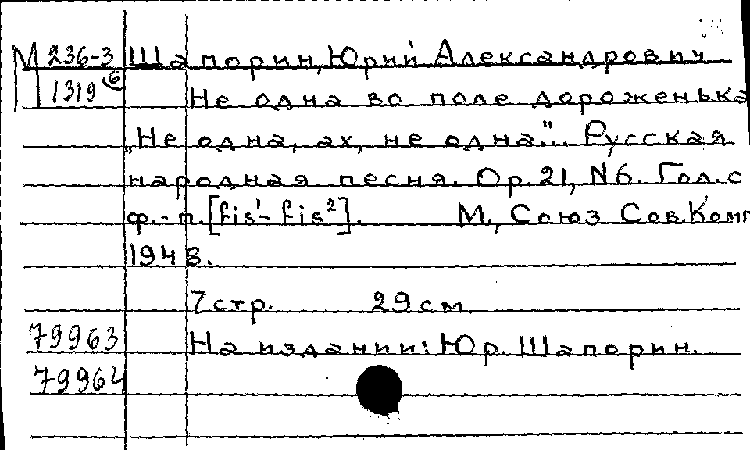 М 236-3 Шапорин, Юрий Александрович
1319 ⑥ Не одна во поле дороженька
„Не одна, ах, не одна“... Русская
народная песня. Op. 21, N6. Гол. с
ф.-п. [fis¹- fis²]. М., Союз Сов. Комп
1948.
7 стр. 29 см
79963 На издании: Юр. Шапорин.
79964